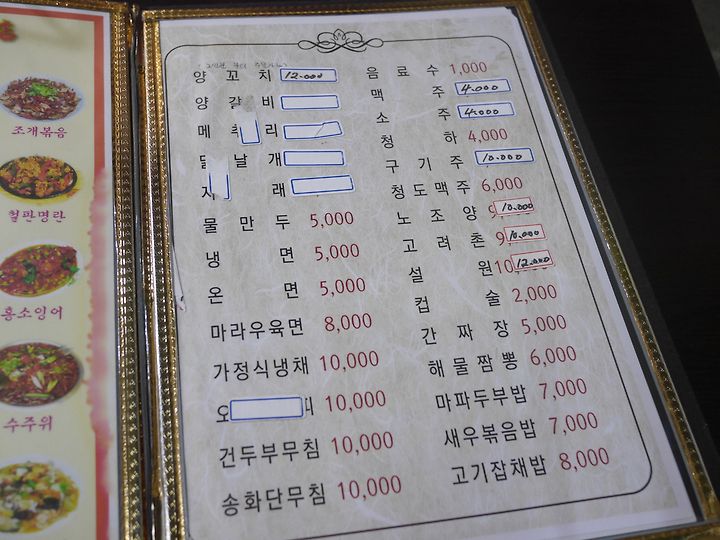 조개볶음
철판명란
홍소잉어
수주위
양 꼬 치 12.000
양 갈 비
메 리
날 개
래
물 만 두 5,000
냉 면 5,000
온 면 5,000
마라우육면 8,000
가정식냉채 10,000
오 10,000
건두부무침 10,000
송화단무침 10,000
음 료 수 1,000
맥 주 4.000
소 주 4.000
청 하 4,000
구 기 주 10.000
청도맥주 6,000
노 조 양 10.000
고 려 촌 10.000
설 원 12.000
컵 술 2,000
간 짜 장 5,000
해물짬뽕 6,000
마파두부밥 7,000
새우볶음밥 7,000
고기잡채밥 8,000